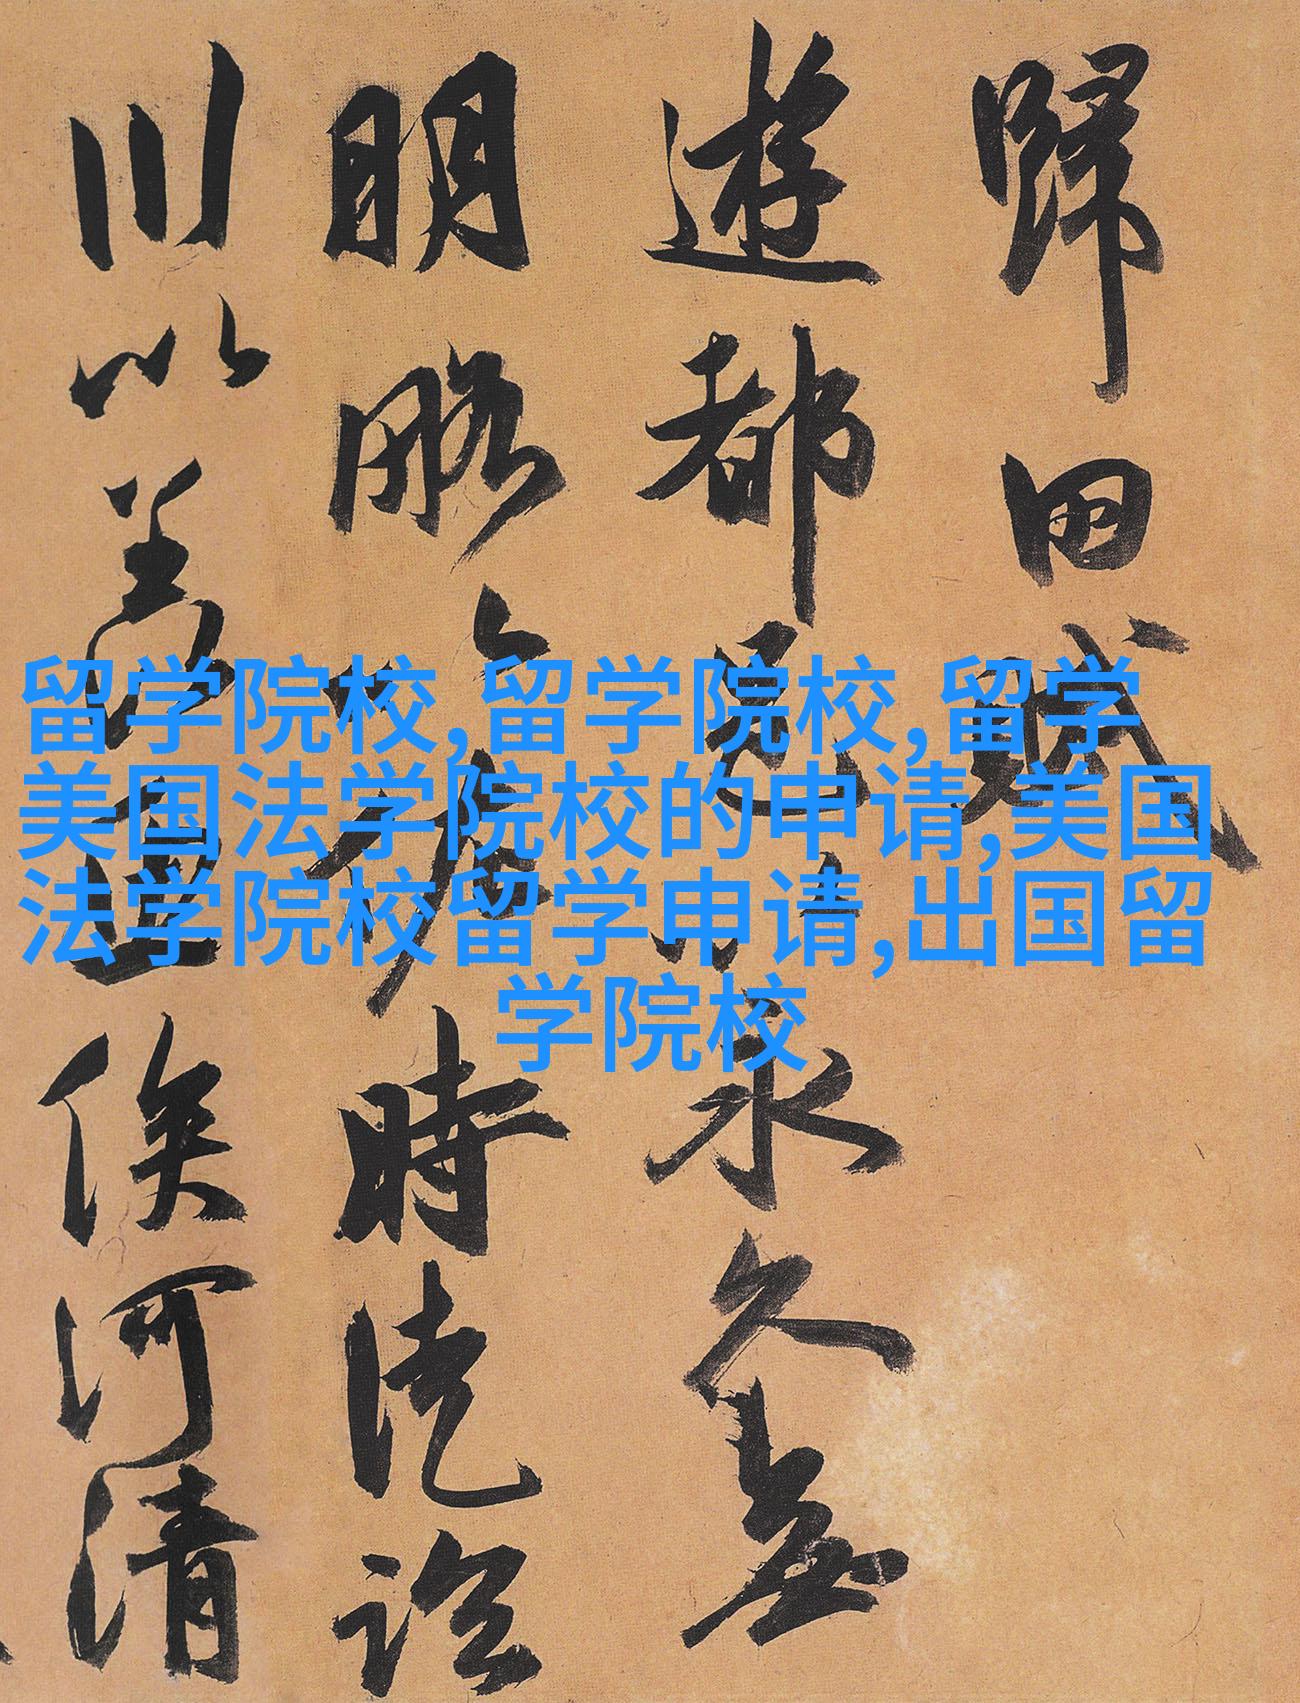 歸田賦
遊都邑以永久無
明略以佐時徒臨
川以羨魚俟河清
留学院校,留学院校,留学
美国法学院校的申请,美国
法学院校留学申请,出国留
学院校